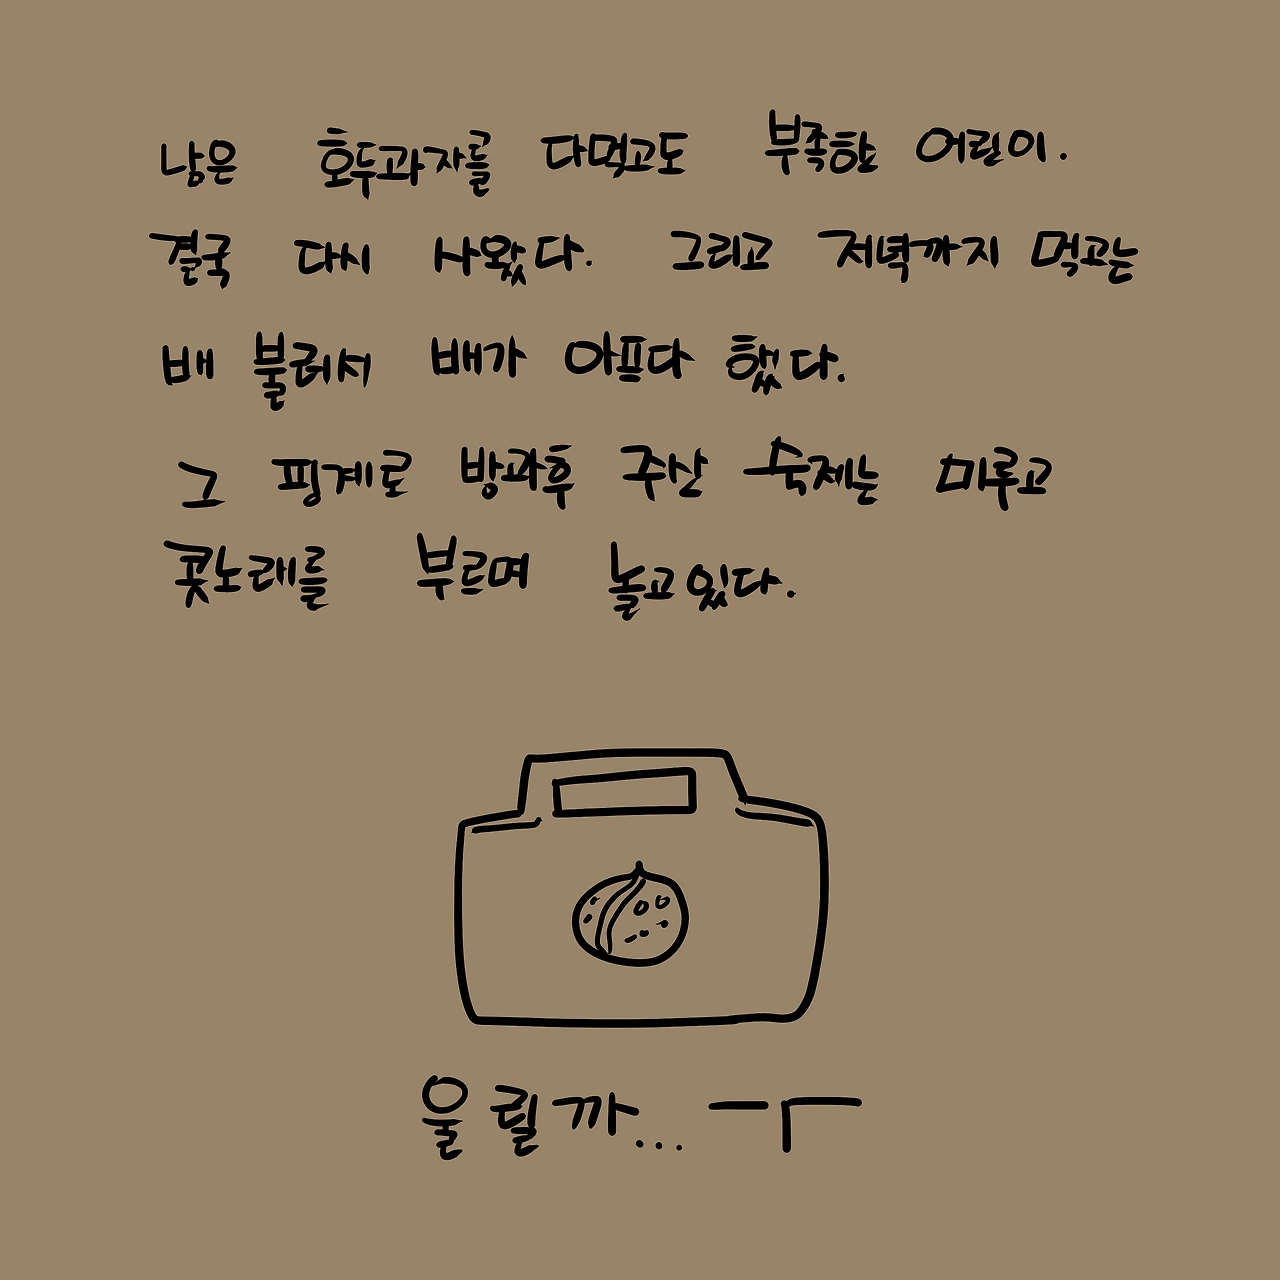 남은 호두과자를 다먹고도 부족한 어린이.
결국 다시 사왔다. 그리고 저녁까지 먹고는
배 불러서 배가 아프다 했다.
그 핑계로 방과후 주산 숙제는 미루고
콧노래를 부르며 놀고있다.
울릴까... ㅡㅜ